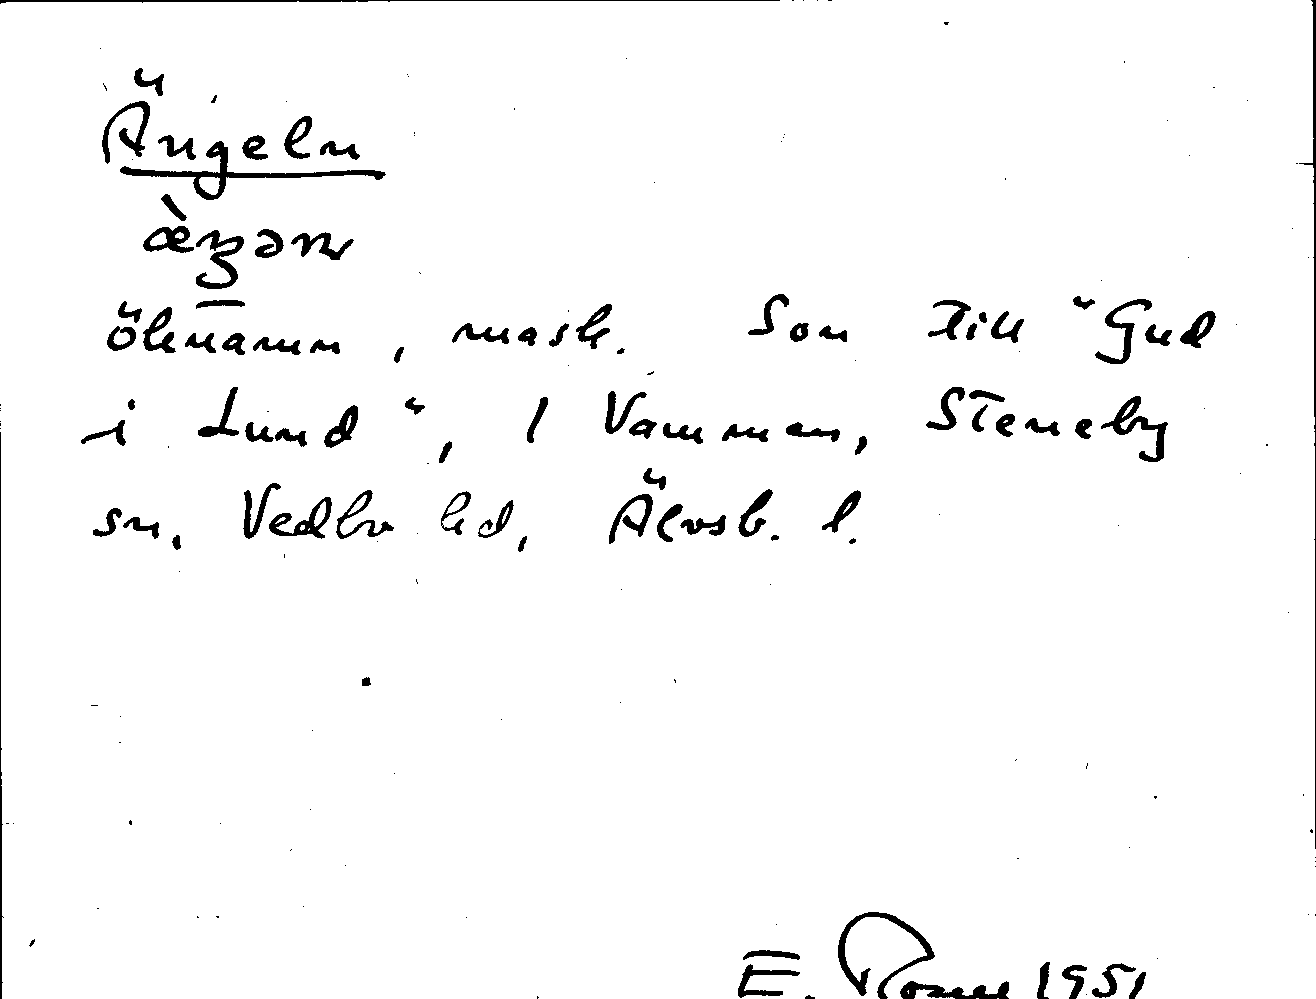 Ängeln
öknamn, mask. Son till "Gud
i Lund", / Vamman, Steneby
sn, Vedbo hd, Älvsb. l.
E. Rosell 1951